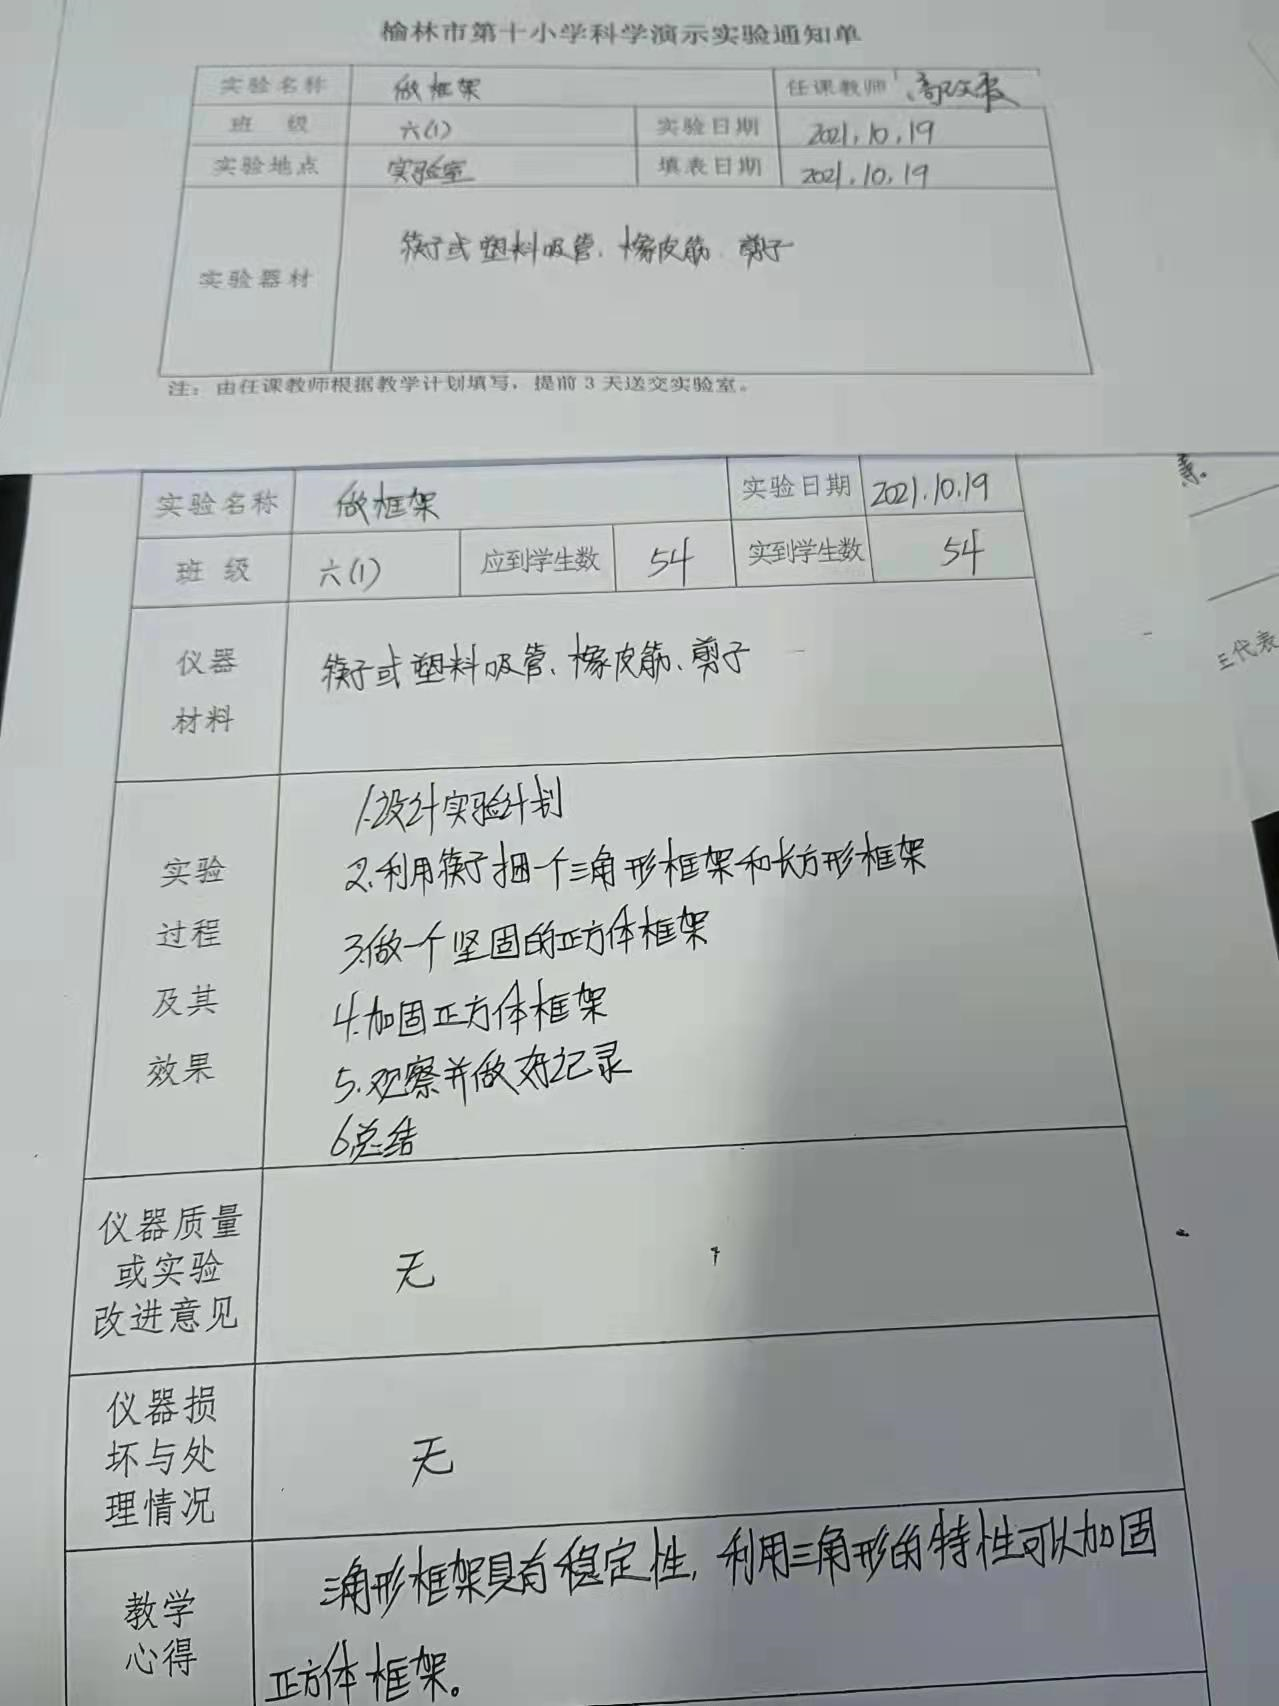 榆林市第十小学科学演示实验通知单
实验名称 做框架 任课教师
班 级 六(1) 实验日期 2021.10.19
实验地点 实验室 填表日期 2021.10.19
实验器材 筷子或塑料吸管、橡皮筋、剪子
注：由任课教师根据教学计划填写，提前 3 天送交实验室。
实验名称 做框架 实验日期 2021.10.19
班 级 六(1) 应到学生数 54 实到学生数 54
仪器
材料
筷子或塑料吸管、橡皮筋、剪子
实验
过程
及其
效果
1.设计实验计划
2.利用筷子捆一个三角形框架和长方形框架
3.做一个坚固的正方体框架
4.加固正方体框架
5.观察并做好记录
6.总结
仪器质量
或实验
改进意见
无
仪器损
坏与处
理情况
无
教学
心得
三角形框架具有稳定性，利用三角形的特性可以加固
正方体框架。
代表